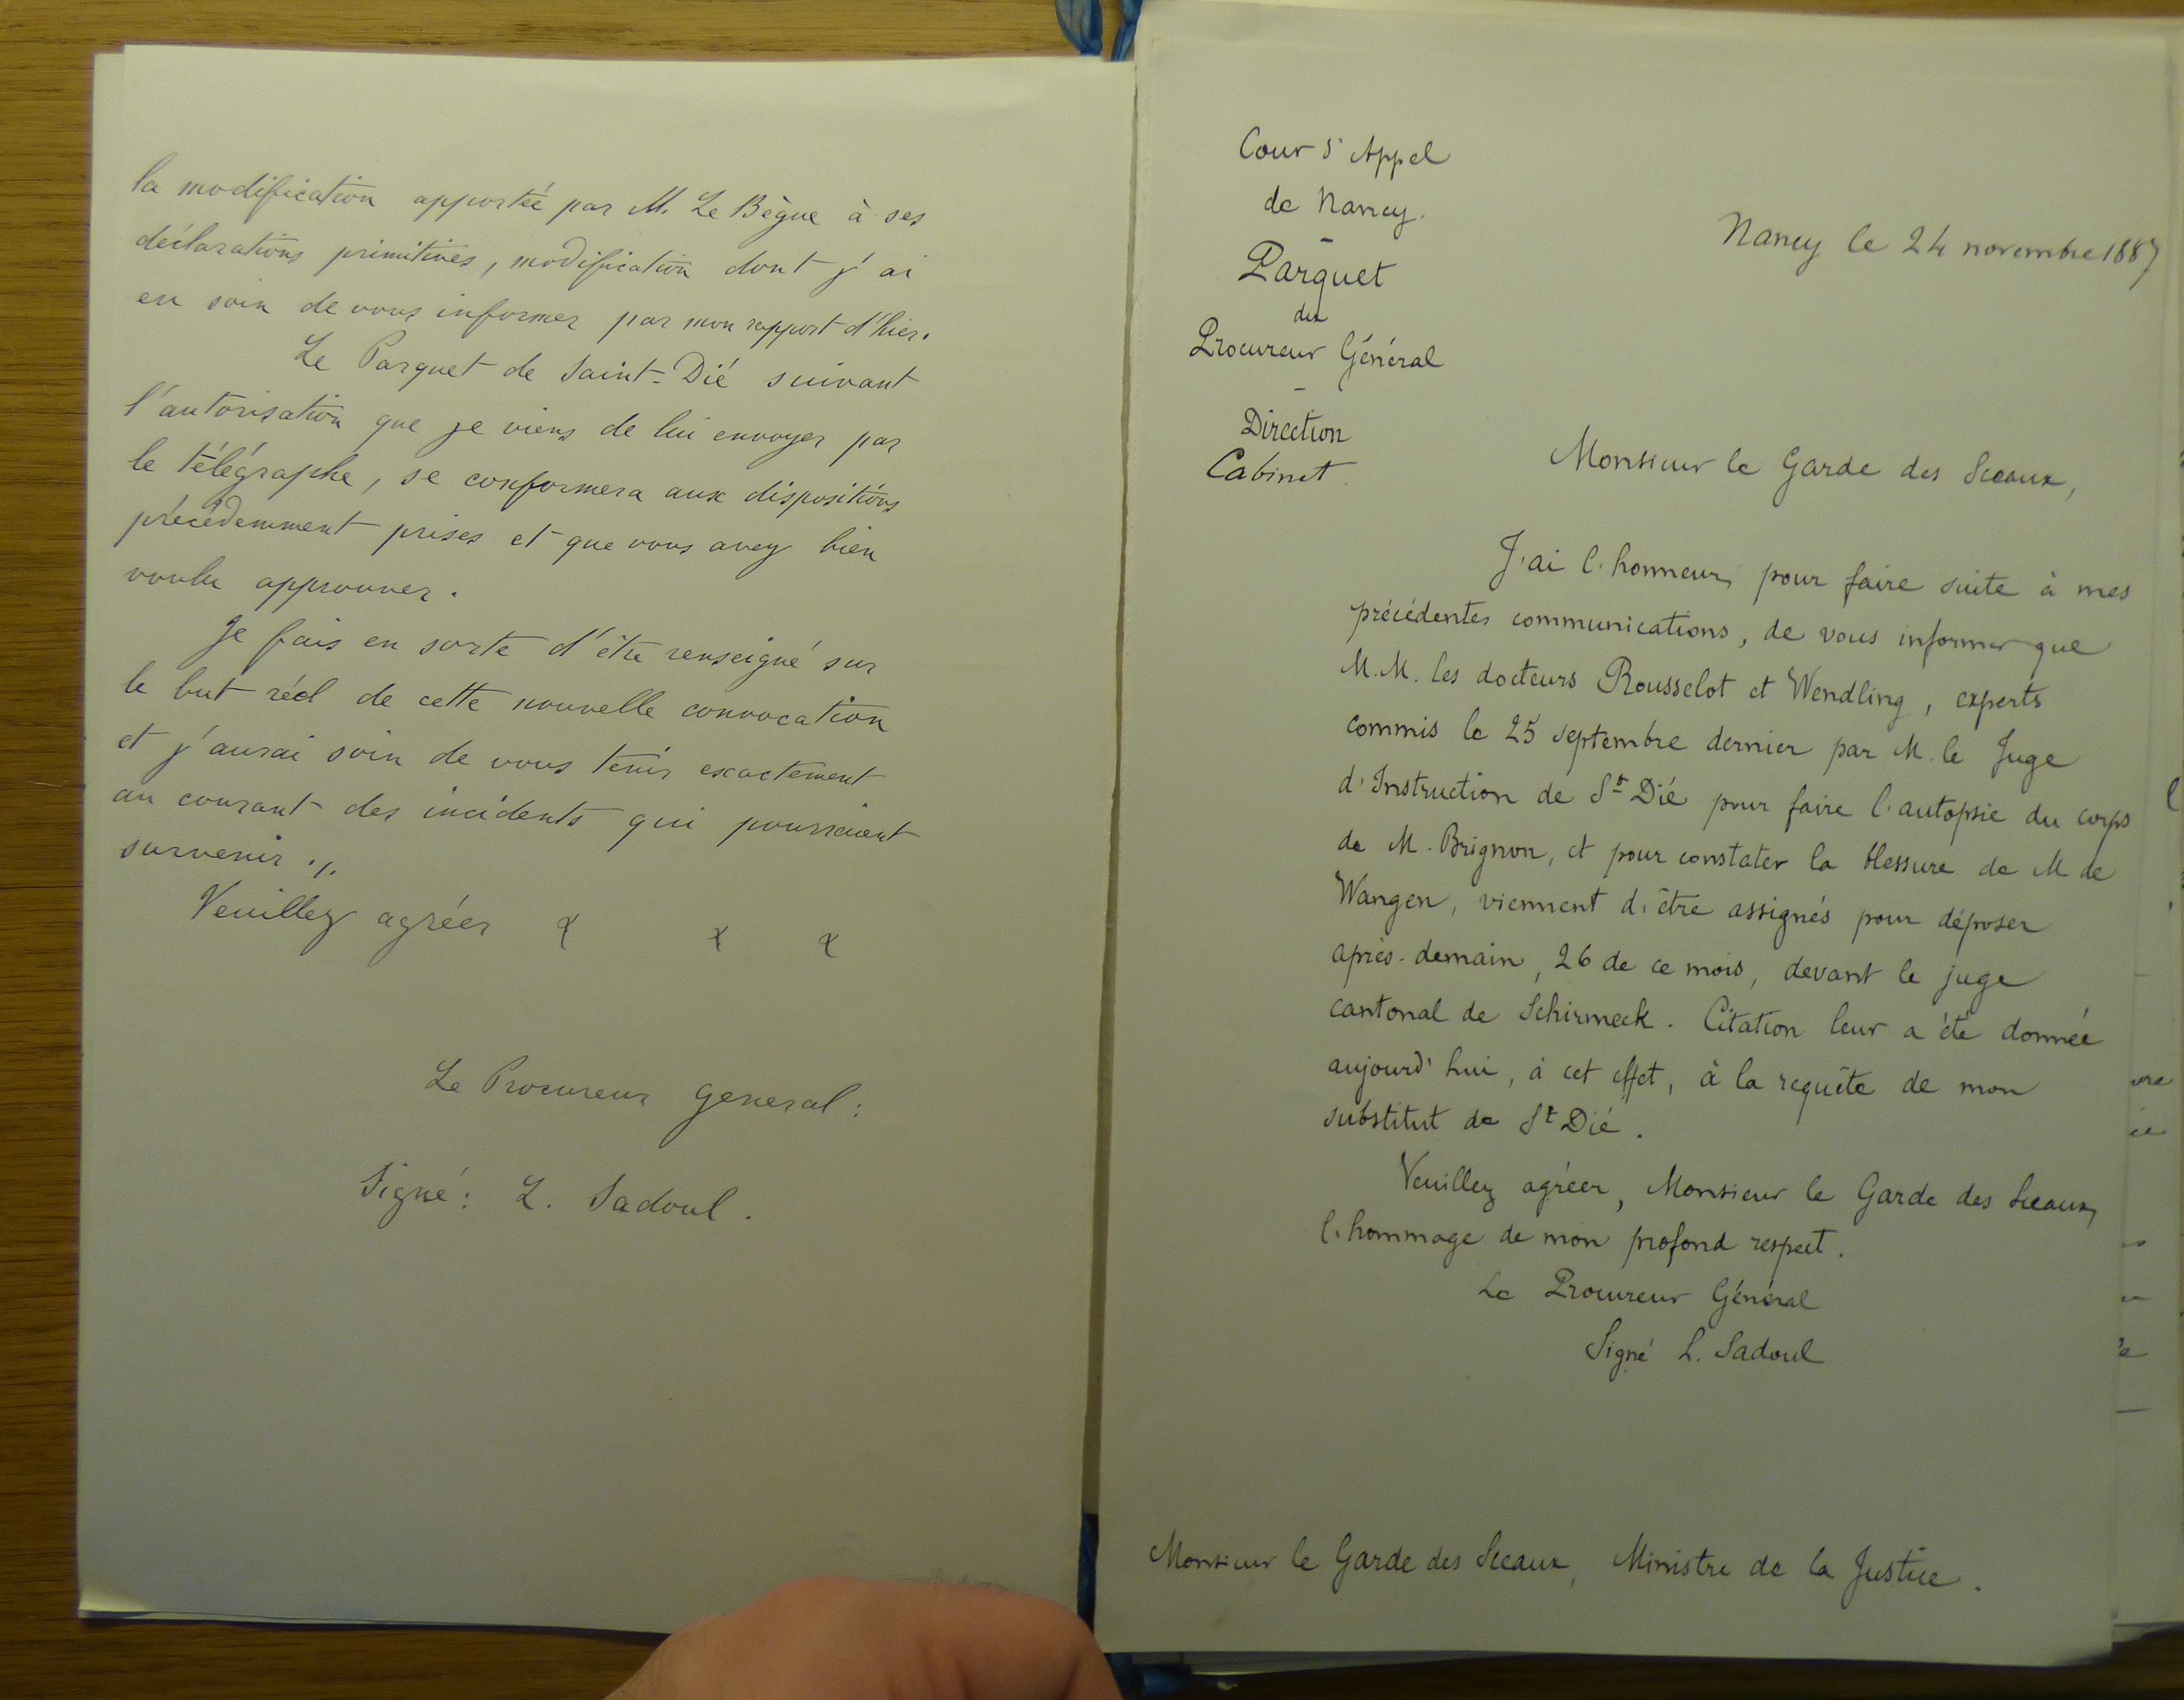 la modification apportée par M. Le Bègue à ses
déclarations primitives, modification dont j'ai
eu soin de vous informer par mon rapport d'hier.
Le Parquet de Saint-Dié suivant
l'autorisation que je viens de lui envoyer par
le télégraphe, se conformera aux dispositions
précédemment prises et que vous avez bien
voulu approuver.
Je fais en sorte d'être renseigné sur
le but réel de cette nouvelle convocation
et j'aurai soin de vous tenir exactement
au courant des incidents qui pourraient
survenir ./.
Veuillez agréer
Le Procureur General :
Signé : L. Sadoul.
Cour d'Appel
de Nancy.
-
Parquet
du
Procureur Général
-
Direction
Cabinet.
Nancy le 24 novembre 1887
Monsieur le Garde des Sceaux,
J'ai l'honneur, pour faire suite à mes
précédentes communications, de vous informer que
M.M. les docteurs Rousselot et Wendling, experts
commis le 25 septembre dernier par M. le Juge
d'Instruction de St Dié pour faire l'autopsie du corps
de M. Brignon, et pour constater la blessure de M de
Wangen, viennent d'être assignés pour déposer
après-demain, 26 de ce mois, devant le juge
cantonal de Schirmeck. Citation leur a été donnée
aujourd'hui, à cet effet, à la requête de mon
substitut de St Dié.
Veuillez agréer, Monsieur le Garde des Sceaux,
l'hommage de mon profond respect.
Le Procureur Général
Signé L. Sadoul
Monsieur le Garde des Sceaux, Ministre de la Justice.